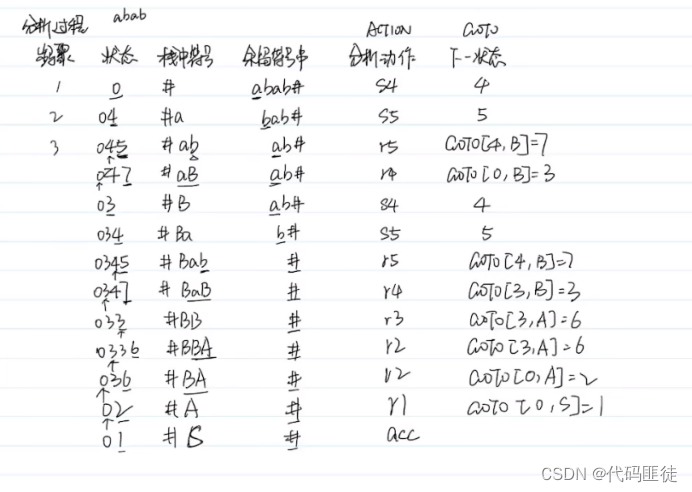 分析过程 abab
步骤 状态 栈中符号 余留符号串 ACTION 分析动作 GOTO 下一状态
1 0 # abab# S4 4
2 04 #a bab# S5 5
3 045 #ab ab# r5 GOTO[4,B]=7
047 #aB ab# r4 GOTO[0,B]=3
03 #B ab# S4 4
034 #Ba b# S5 5
0345 #Bab # r5 GOTO[4,B]=7
0347 #BaB # r4 GOTO[3,B]=3
033 #BB # r3 GOTO[3,A]=6
0336 #BBA # r2 GOTO[3,A]=6
036 #BA # r2 GOTO[0,A]=2
02 #A # r1 GOTO[0,S]=1
01 #S # acc
CSDN @代码匪徒